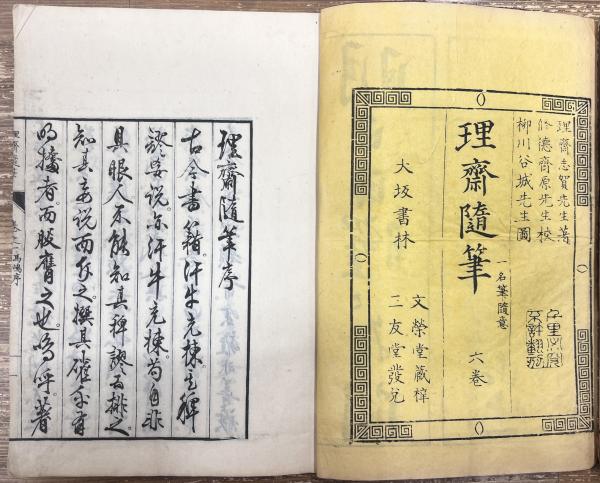 理齋志賀先生著
修德齋原先生校
柳川谷城先生圖
理齋隨筆
一名筆隨意
六卷
大坂書林
文榮堂藏梓
三友堂發兌
理齋隨筆序
古今書籍。汗牛充棟之稗
謬妄說。亦汗牛充棟。苟自非
具眼人不能知真稗謬而排之
知真妄說而斥之。撰其確亦有
明據者。而服膺之也。嗚呼。著